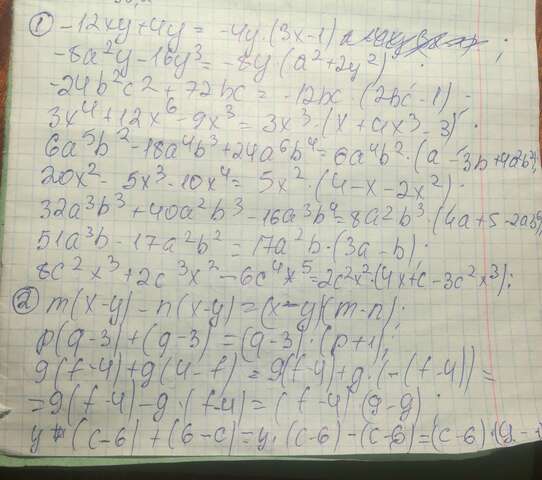 ① -12xy+4y = -4y·(3x-1) ;
-8a²y-16y³ = -8y·(a²+2y²) ;
-24b²c²+72bc = -12bc·(2bc-1) -
3x⁴+12x⁶-9x³ = 3x³·(x+4x³-3) ;
6a⁵b²-18a⁴b³+24a⁶b⁴ = 6a⁴b²·(a-3b+4a²b²)
20x²-5x³-10x⁴ = 5x²·(4-x-2x²) ;
32a³b³+40a²b³-16a³b⁴ = 8a²b³·(4a+5-2ab)
51a³b-17a²b² = 17a²b·(3a-b) ;
8c²x³+2c³x²-6c⁴x⁵ = 2c²x²·(4x+c-3c²x³) ;
② m(x-y)-n(x-y) = (x-y)(m-n) ;
p(q-3)+(q-3) = (q-3)·(p+1) ;
9(f-4)+g(4-f) = 9(f-4)+g·(-(f-4)) =
= 9(f-4)-g·(f-4) = (f-4)·(9-g) ;
y·(c-6)+(6-c) = y·(c-6)-(c-6) = (c-6)·(y-